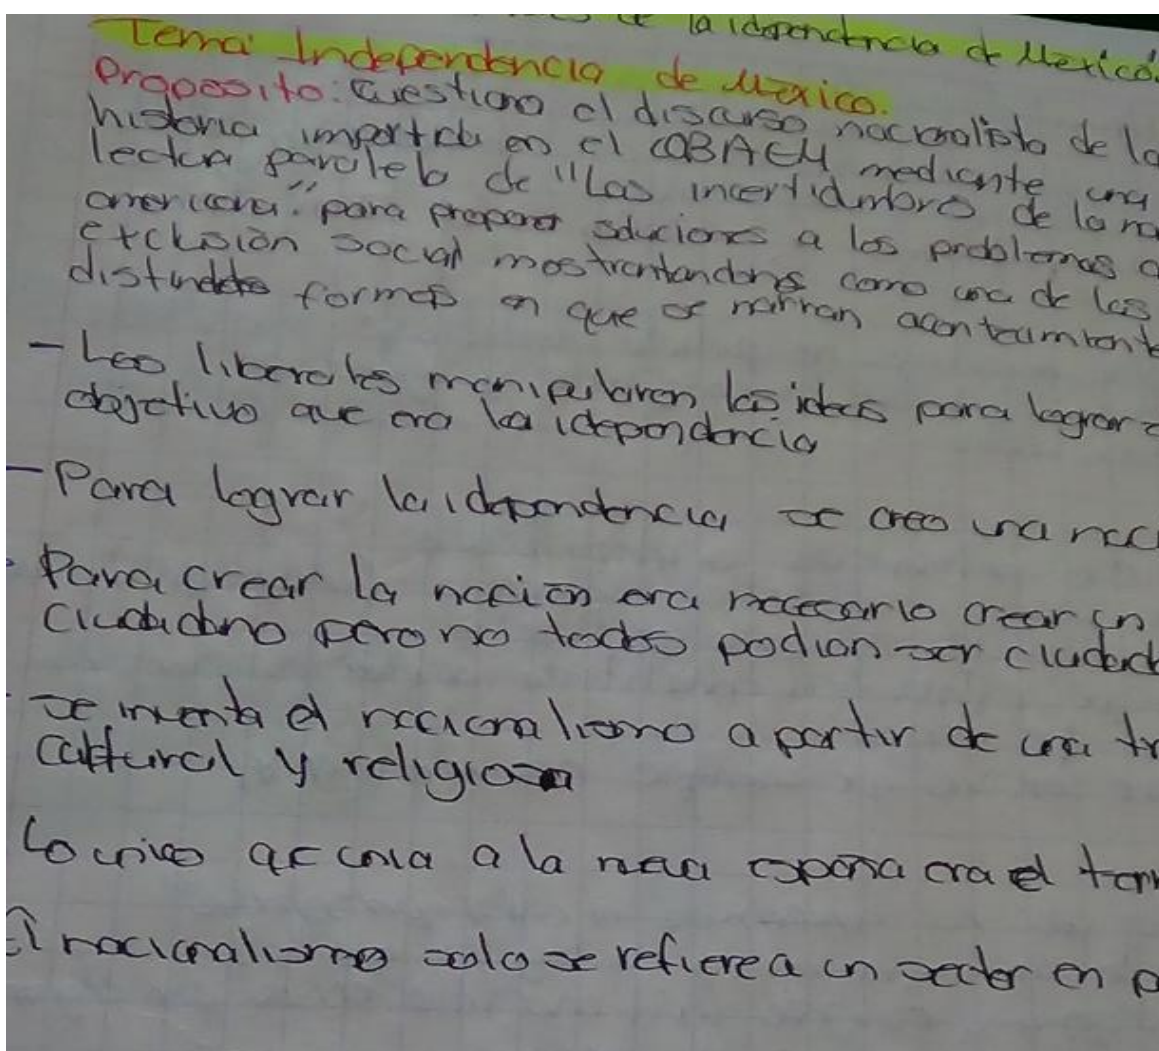 la idependencia de Mexicó.
Tema: Independencia de Mexico.
Proposito: Cuestiono el discurso nacionalista de la
historia impartida en el COBAEM mediante una
lectura paralela de "Las incertidumbres de la na
americana." para proponer soluciones a los problemas d
exclusión social mostrantandons como una de las
distindets formas en que se narran acontecimient
- Los liberales manipularon las ideas para lograr e
objetivo que era la idependencia
- Para lograr la idependencia se creo una nac
Para crear la nación era necesario crear un
Ciudadano pero no todos podian ser ciudad
Se inventa el nacionalismo a partir de una tr
cultural y religiosa
Lo unico qe unia a la neva españa era el terr
El nacionalismo solo se refiere a un sector en p